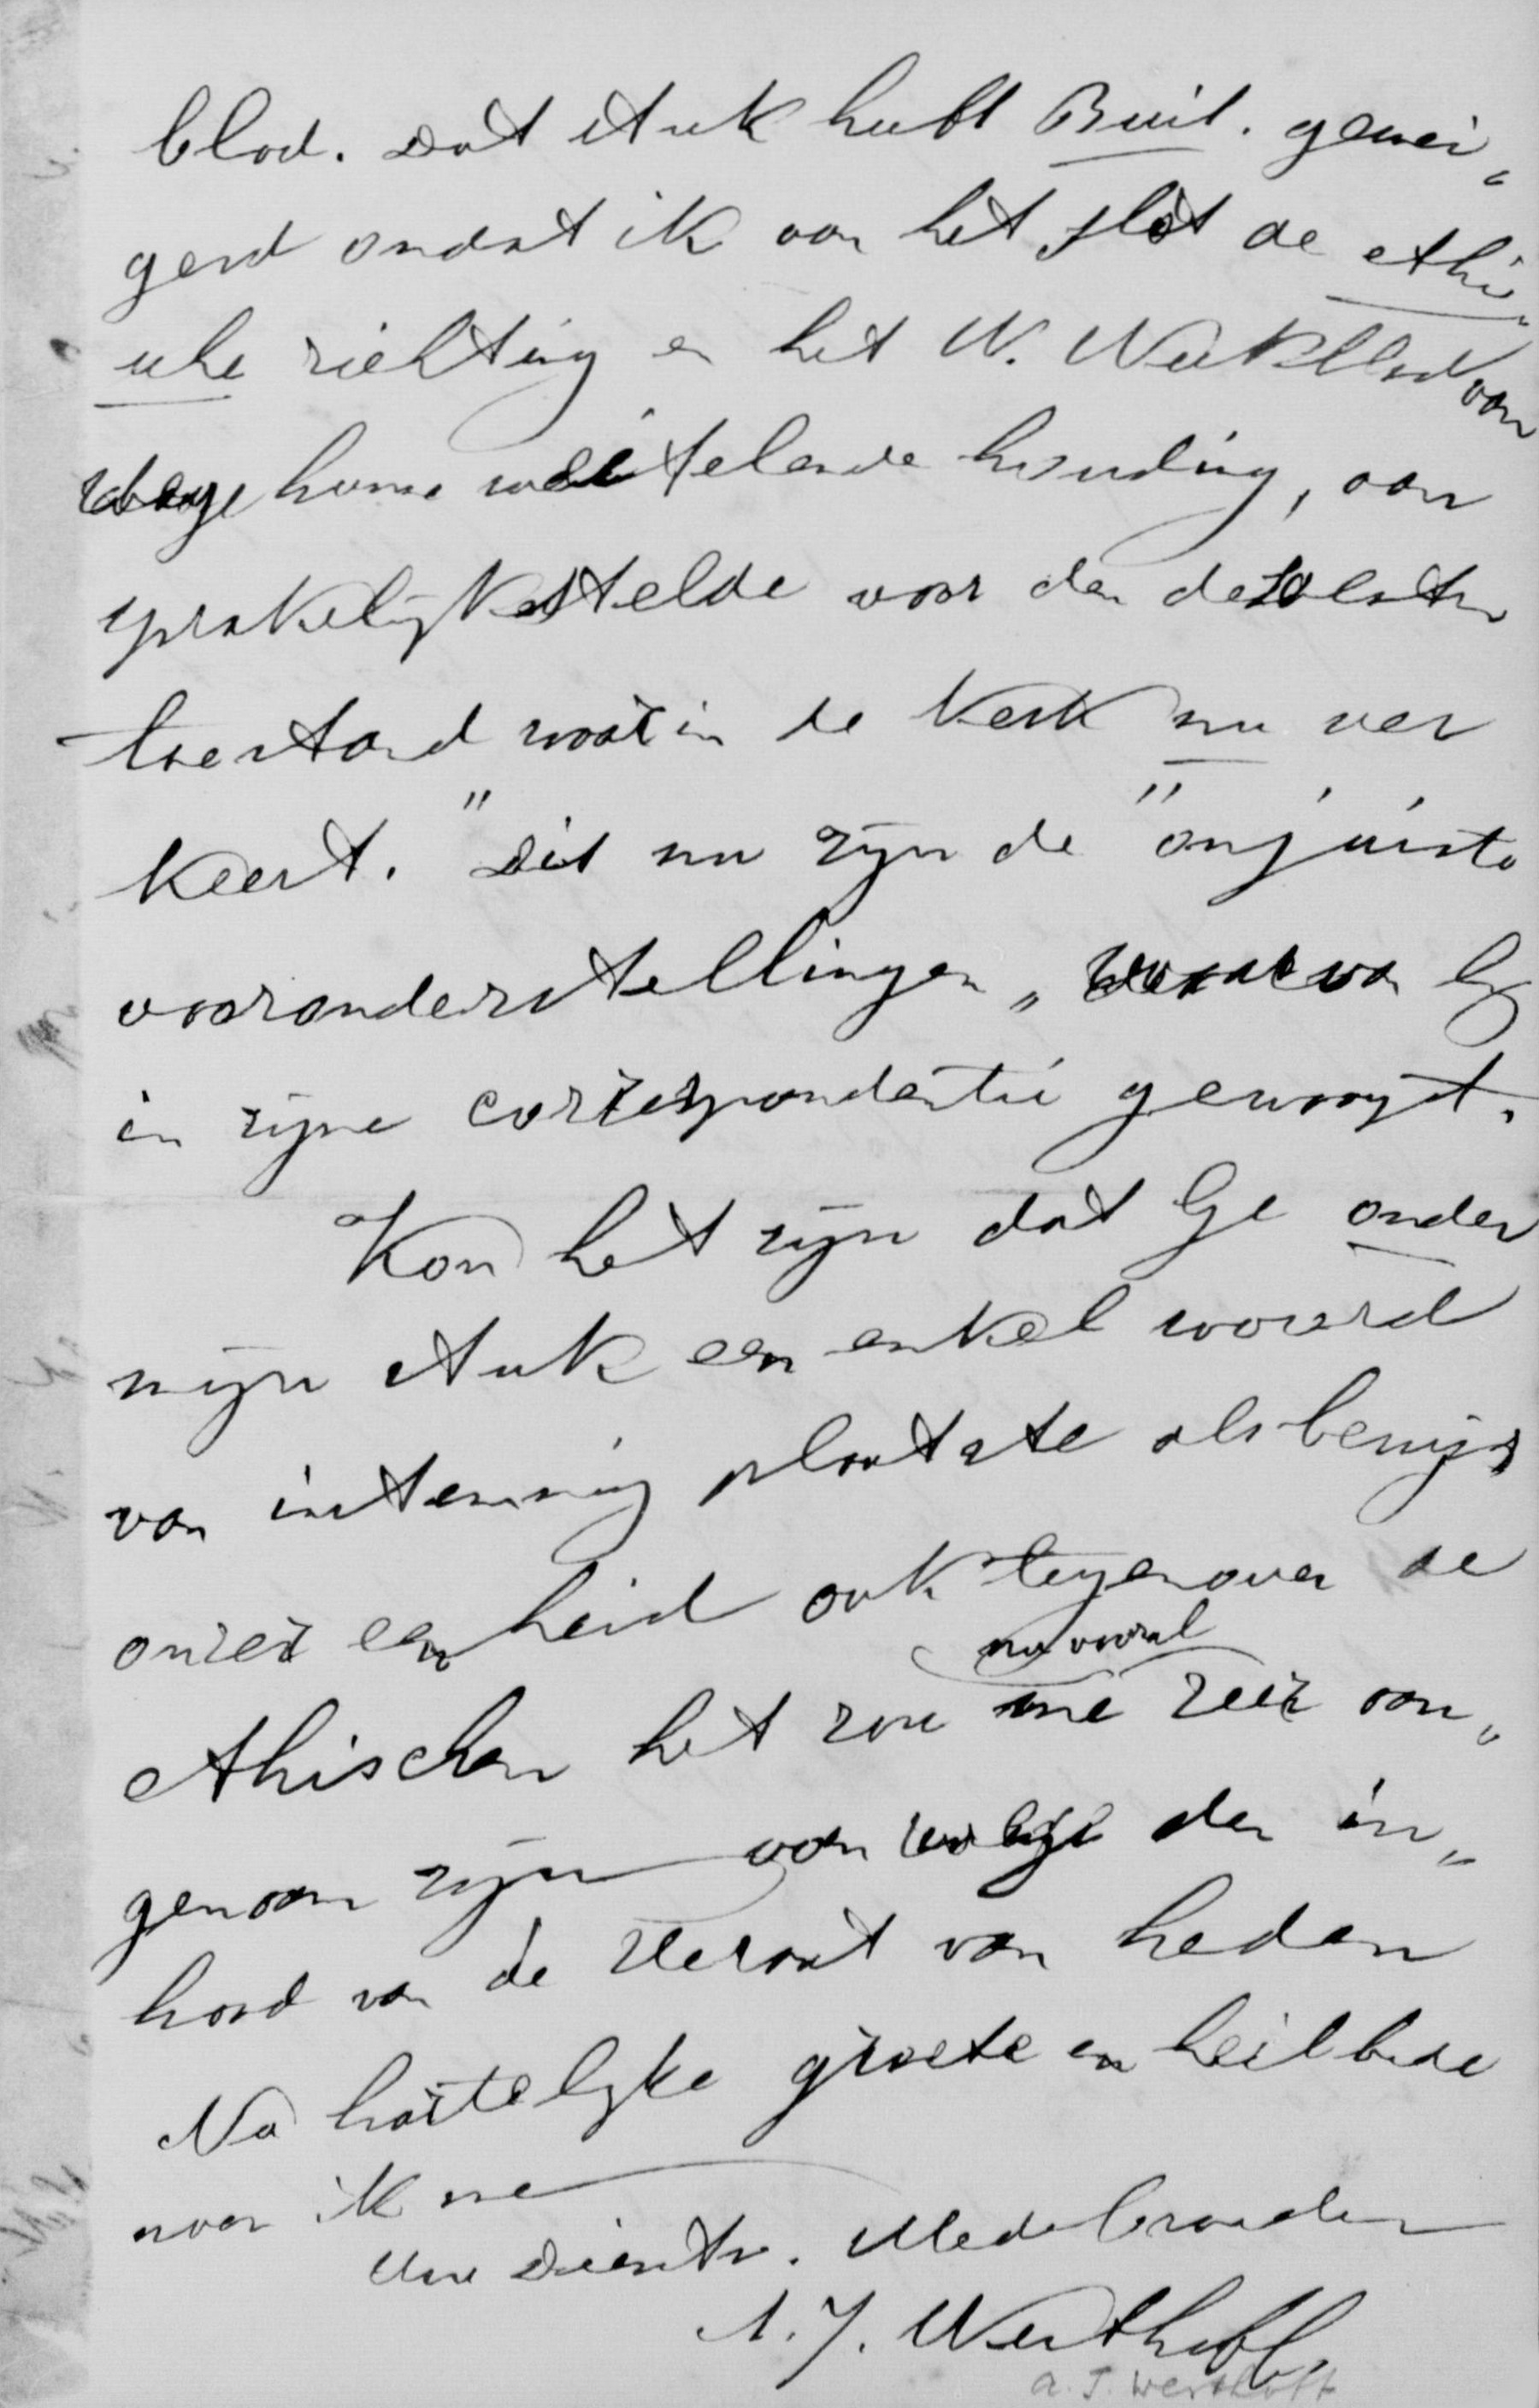 blad. Dat stuk heeft Buit. gewei„
gerd omdat ik aan het slot de ethi„
sche richting en het W. Weekblad van
wege hunne weifelende houding, aan
sprakelijk stelde voor den desolaten
toestand waarin de Kerk nu ver
keert." Dit nu zijn de "onjuiste
vooronderstellingen„ waarvan hij
in zijne correspondentie gewaagt.
Kon het zijn dat Ge onder
mijn stuk een enkel woord
van instemming plaatste als bewijs
onzer eenheid ook tegenover de
nu vooral
ethischen het zou me zeer aan„
genaam zijn van wege den in„
houd van de Heraut van heden
Na hartelijke groete en heilbede
noem ik me
Uw Dienstv. Medebroeder
A. J. Westhoff,
A. J. Westhoff